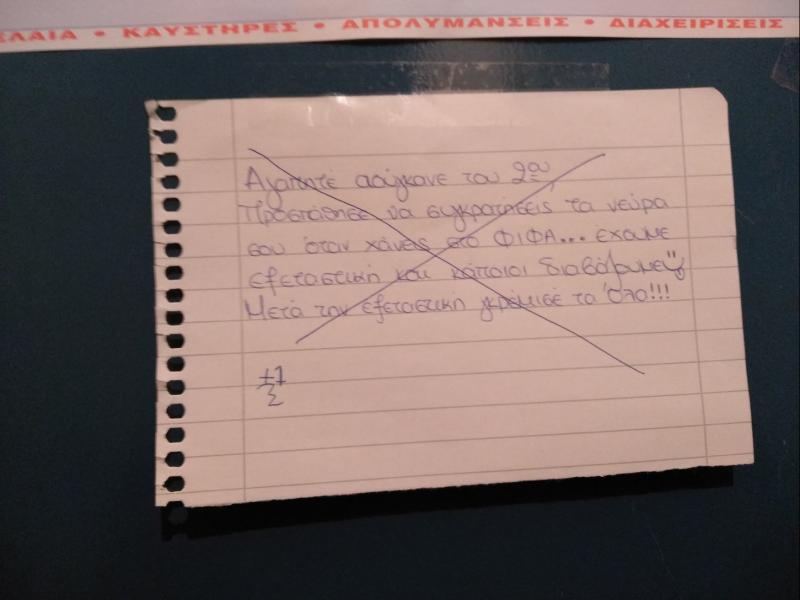 ΕΛΑΙΑ • ΚΑΥΣΤΗΡΕΣ • ΑΠΟΛΥΜΑΝΣΕΙΣ • ΔΙΑΧΕΙΡΙΣΕΙΣ
Αγαπητέ του 2ου,
Προσπάθησε να συγκρατήσεις τα νεύρα
σου όταν χάνεις στο ΦΙΦΑ... έχουμε
εξεταστική και κάποιοι διαβάζουμε
Μετά την εξεταστική γκρέμισέ τα όλα!!!
+1
Σ